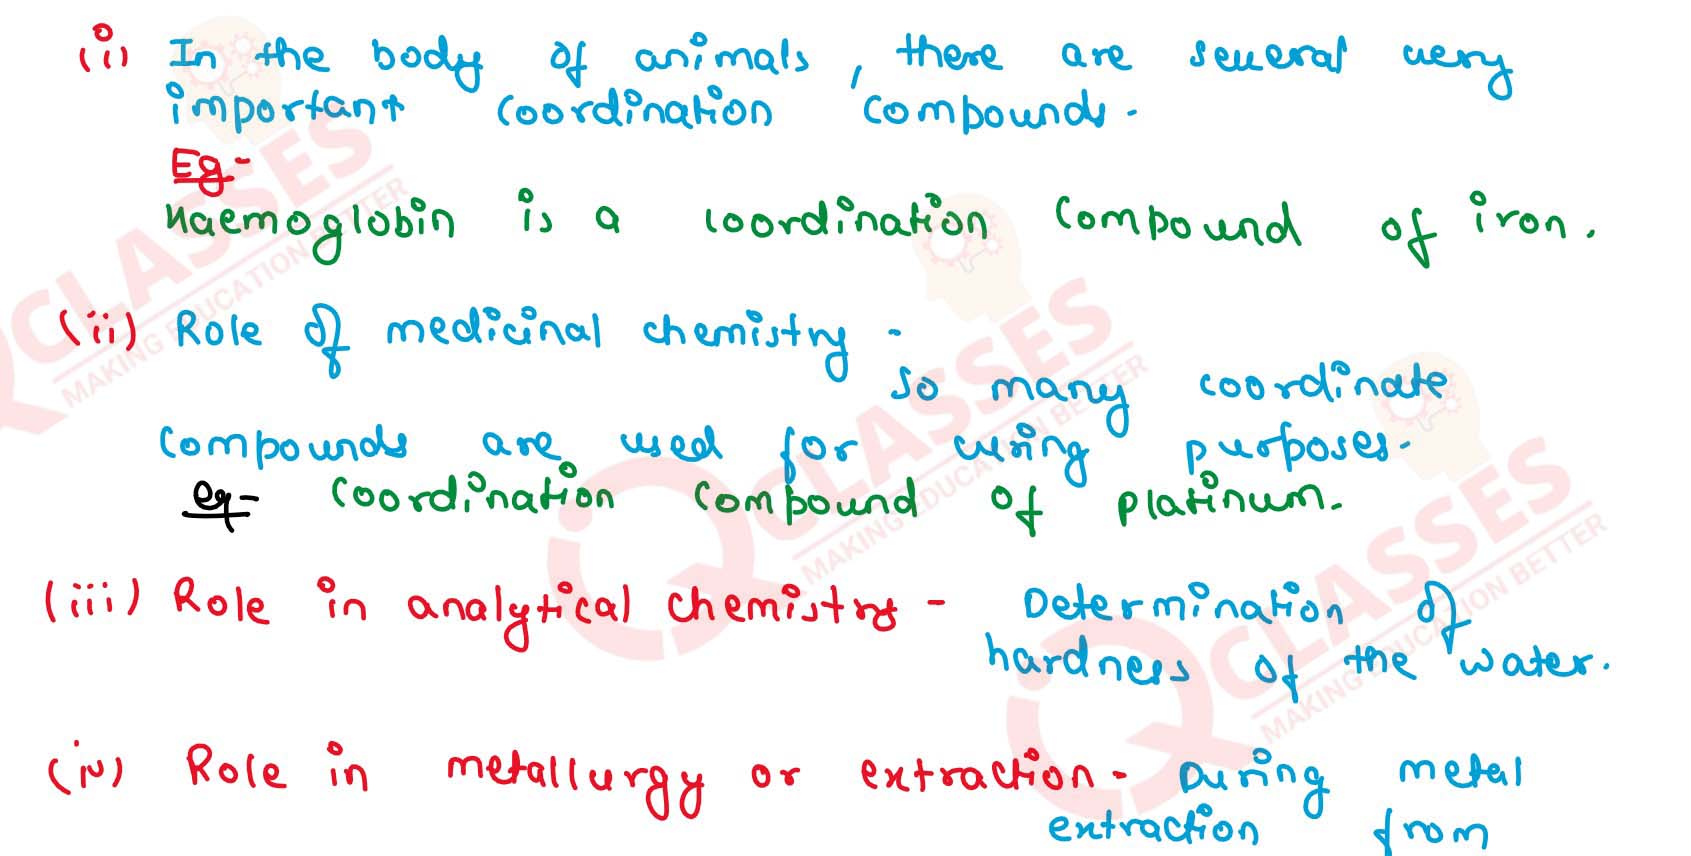 (i) In the body of animals, there are several very
important coordination compounds.
Eg-
Haemoglobin is a coordination compound of iron.
(ii) Role of medicinal chemistry -
So many coordinate
compounds are used for curing purposes.
eg- Coordination compound of platinum.
(iii) Role in analytical chemistry - Determination of
hardness of the water.
(iv) Role in metallurgy or extraction - During metal
extraction from
CLASSES
MAKING EDUCATION BETTER
CLASSES
MAKING EDUCATION BETTER
CLASSES
MAKING EDUCATION BETTER